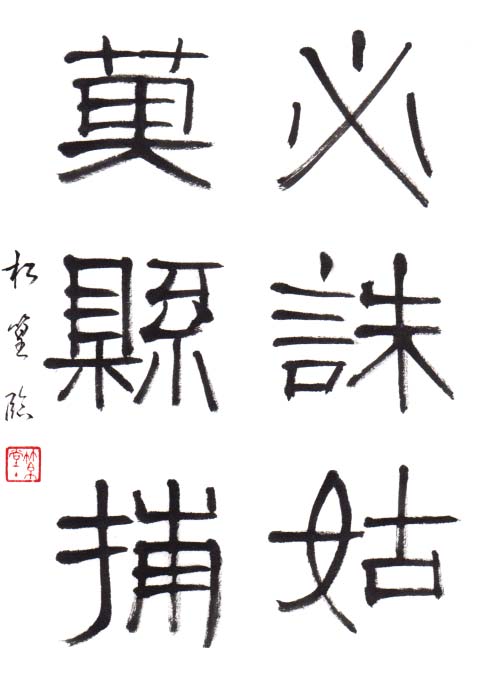 必誅姑
莫縣捕
松篁臨